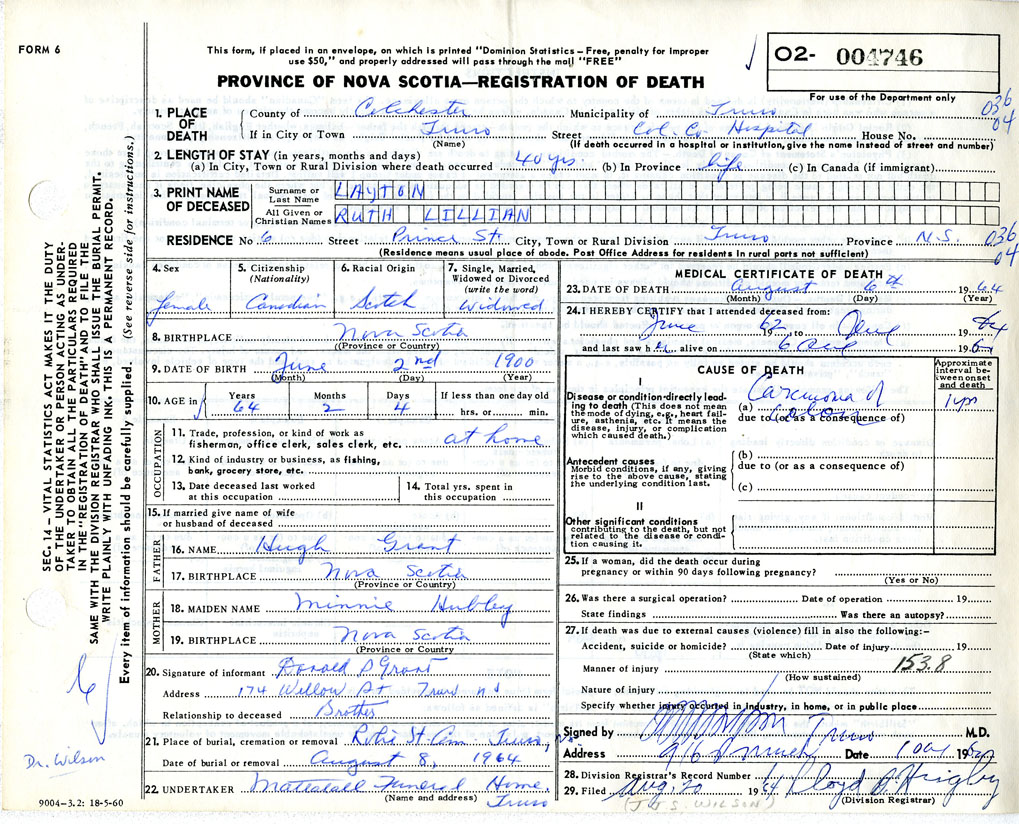 FORM 6
This form, if placed in an envelope, on which is printed "Dominion Statistics – Free, penalty for improper
use $50," and properly addressed will pass through the mail "FREE"
O2- 004746
PROVINCE OF NOVA SCOTIA—REGISTRATION OF DEATH
For use of the Department only
036
04
1. PLACE OF DEATH County of Colchester Municipality of Truro
If in City or Town Truro Street Col. Co. Hospital House No.
(Name) (If death occurred in a hospital or institution, give the name instead of street and number)
2. LENGTH OF STAY (in years, months and days)
(a) In City, Town or Rural Division where death occurred 40 yrs. (b) In Province life (c) In Canada (if immigrant)
3. PRINT NAME OF DECEASED
Surname or Last Name LAYTON
All Given or Christian Names RUTH LILLIAN
RESIDENCE No 6 Street Prince St. City, Town or Rural Division Truro Province N.S. 036
04
(Residence means usual place of abode. Post Office Address for residents in rural parts not sufficient)
4. Sex female
5. Citizenship (Nationality) Canadian
6. Racial Origin Scotch
7. Single, Married, Widowed or Divorced (write the word) Widowed
8. BIRTHPLACE Nova Scotia
((Province or Country)
9. DATE OF BIRTH June 2nd 1900
(Month) (Day) (Year)
10. AGE in Years 64 Months 2 Days 4 If less than one day old
hrs. or min.
OCCUPATION
11. Trade, profession, or kind of work as
fisherman, office clerk, sales clerk, etc. at home
12. Kind of industry or business, as fishing,
bank, grocery store, etc.
13. Date deceased last worked
at this occupation
14. Total yrs. spent in
this occupation
15. If married give name of wife
or husband of deceased
FATHER
16. NAME Hugh Grant
17. BIRTHPLACE Nova Scotia
(Province or Country)
MOTHER
18. MAIDEN NAME Minnie Hubley
19. BIRTHPLACE Nova Scotia
(Province or Country
20. Signature of informant Donald D Grant
Address 174 Willow St Truro NS
Relationship to deceased Brother
21. Place of burial, cremation or removal Robie St Cem Truro, NS
Date of burial or removal August 8, 1964
22. UNDERTAKER Mattatall Funeral Home
(Name and address) Truro
9004–3.2: 18-5-60
MEDICAL CERTIFICATE OF DEATH
23. DATE OF DEATH August 6th 1964
(Month) (Day) (Year)
24. I HEREBY CERTIFY that I attended deceased from:
June 1962 to 1964
and last saw her alive on 6 196
CAUSE OF DEATH
Approximate interval between onset and death
I
Disease or condition directly leading to death (This does not mean the mode of dying, e.g., heart failure, asthenia, etc. It means the disease, injury, or complication which caused death.)
(a) Carcinoma of Colon 1 yr
due to (or as a consequence of)
Antecedent causes
Morbid conditions, if any, giving rise to the above cause, stating the underlying condition last.
(b)
due to (or as a consequence of)
(c)
II
Other significant conditions
contributing to the death, but not related to the disease or condition causing it.
25. If a woman, did the death occur during
pregnancy or within 90 days following pregnancy?
(Yes or No)
26. Was there a surgical operation? Date of operation 19
State findings Was there an autopsy?
27. If death was due to external causes (violence) fill in also the following:–
Accident, suicide or homicide? Date of injury 19
(State which)
Manner of injury 153.8
(How sustained)
Nature of injury
Specify whether injury occurred in industry, in home, or in public place
Signed by Truro M.D.
Address Date 196
28. Division Registrar's Record Number
29. Filed Aug. 20 1964 Lloyd
(J S WILSON) (Division Registrar)
SEC. 14 – VITAL STATISTICS ACT MAKES IT THE DUTY
OF THE UNDERTAKER OR PERSON ACTING AS UNDER-
TAKER TO OBTAIN ALL THE PARTICULARS REQUIRED
IN THE "REGISTRATION OF DEATH" AND TO FILE THE
SAME WITH THE DIVISION REGISTRAR WHO SHALL ISSUE THE BURIAL PERMIT.
WRITE PLAINLY WITH UNFADING INK. THIS IS A PERMANENT RECORD.
Every item of information should be carefully supplied. (See reverse side for instructions.)
Dr. Wilson